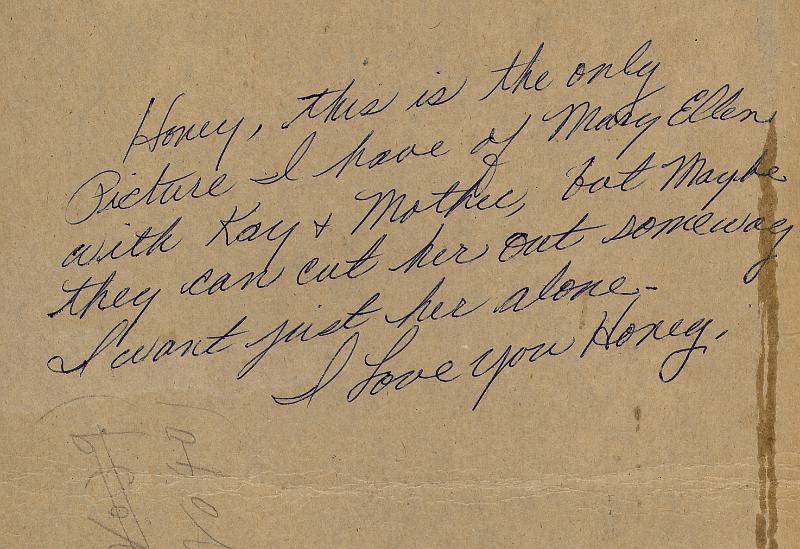 Honey, this is the only
Picture I have of Mary Ellen
with Kay + Mother, but Maybe
they can cut her out someway
I want just her alone-
I Love you Honey.